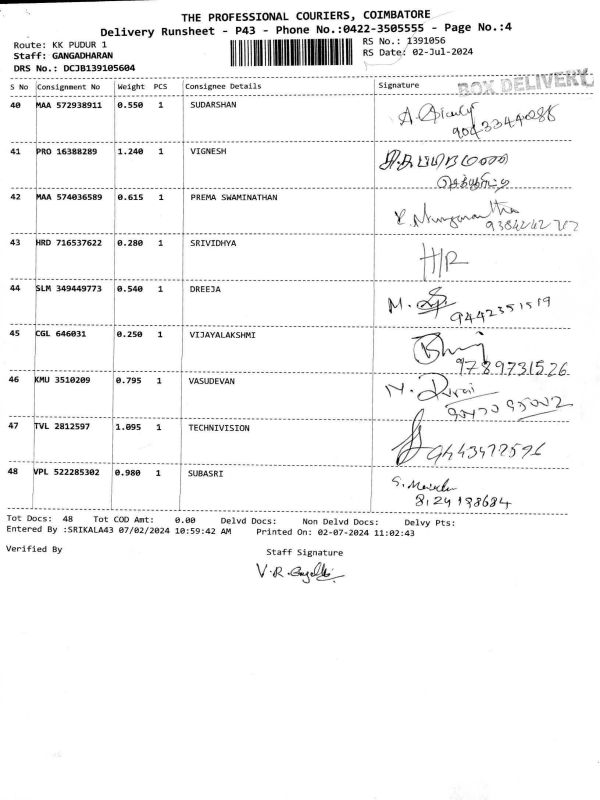 THE PROFESSIONAL COURIERS, COIMBATORE
Delivery Runsheet - P43 - Phone No.:0422-3505555 - Page No.:4
Route: KK PUDUR 1 RS No.: 1391056
Staff: GANGADHARAN RS Date: 02-Jul-2024
DRS No.: DCJB139105604
BOX DELIVERY
S No Consignment No Weight PCS Consignee Details Signature
40 MAA 572938911 0.550 1 SUDARSHAN
9043344086
41 PRO 16388289 1.240 1 VIGNESH
42 MAA 574036589 0.615 1 PREMA SWAMINATHAN
43 HRD 716537622 0.280 1 SRIVIDHYA H/R
44 SLM 349449773 0.540 1 DREEJA M.
9442351519
45 CGL 646031 0.250 1 VIJAYALAKSHMI
9789731526
46 KMU 3510209 0.795 1 VASUDEVAN
47 TVL 2812597 1.095 1 TECHNIVISION
48 VPL 522285302 0.980 1 SUBASRI S.
8124198684
Tot Docs: 48 Tot COD Amt: 0.00 Delvd Docs: Non Delvd Docs: Delvy Pts:
Entered By :SRIKALA43 07/02/2024 10:59:42 AM Printed On: 02-07-2024 11:02:43
Verified By Staff Signature
V.R.